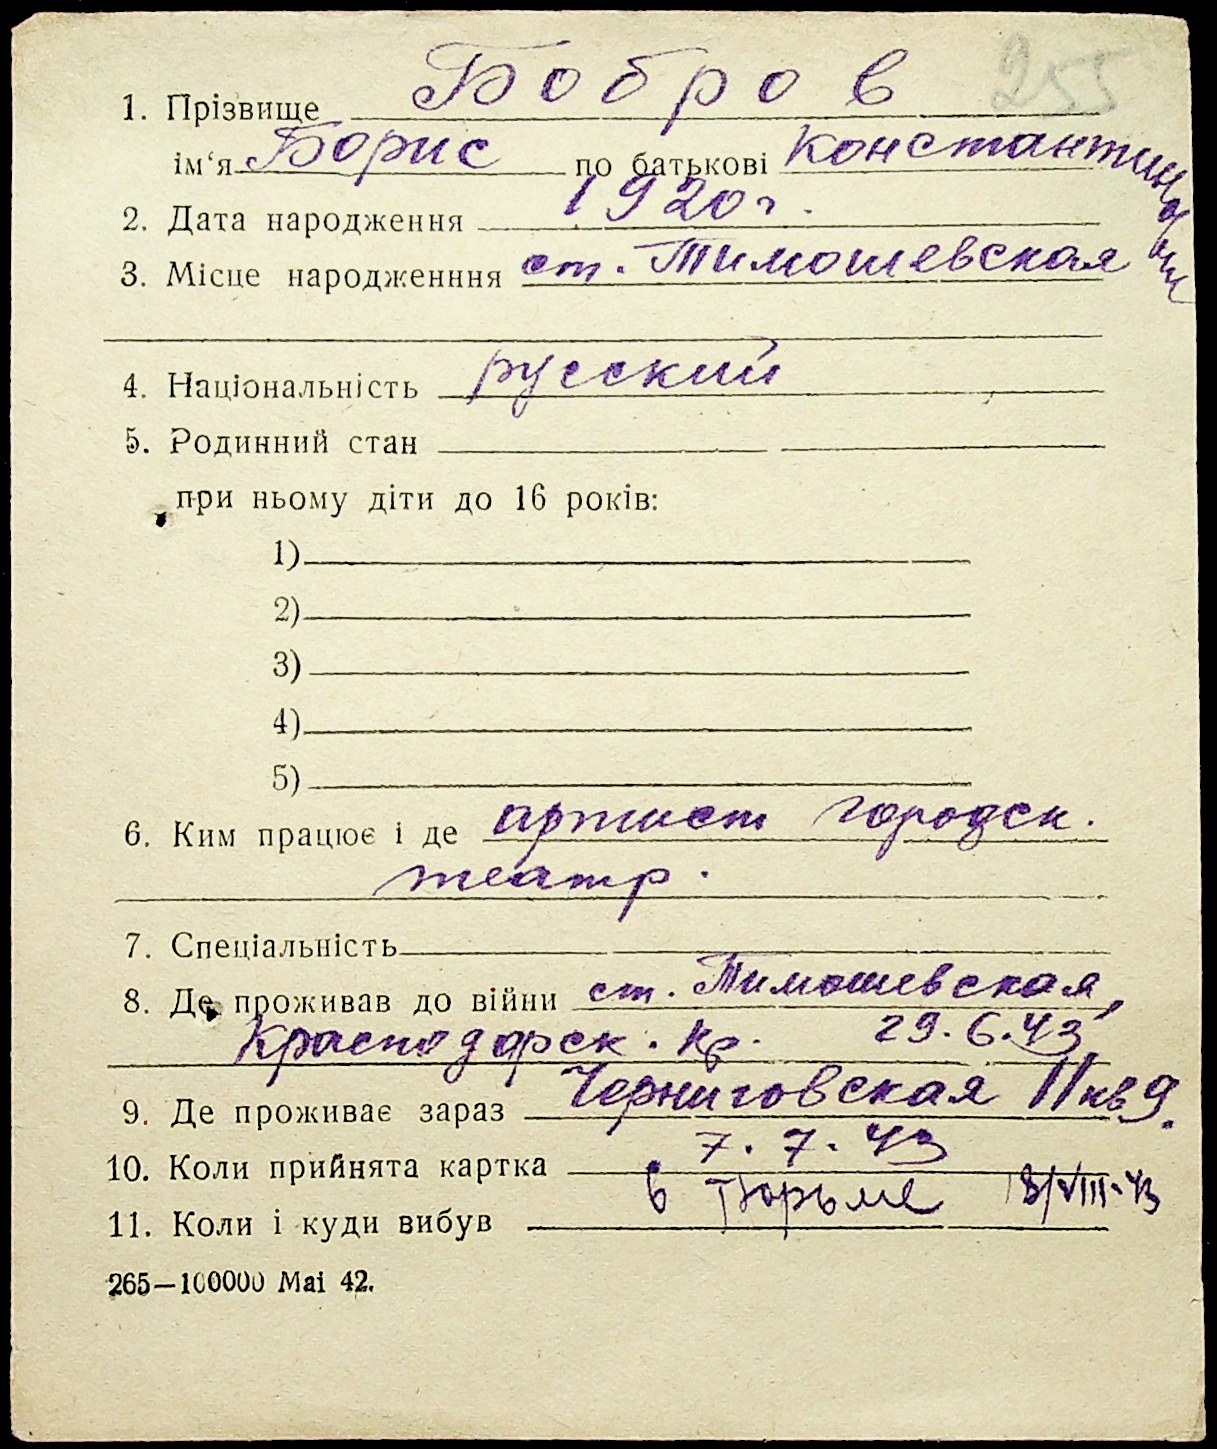 255
1. Прізвище Бобров
ім'я Борис по батькові Константинович
2. Дата народження 1920 г.
3. Місце народженння ст. Тимошевская
4. Національність русский
5. Родинний стан
при ньому діти до 16 років:
1)
2)
3)
4)
5)
6. Ким працює і де артист городск.
театр.
7. Спеціальність
8. Де проживав до війни ст. Тимошевская,
Краснодарск. Кр. 29.6.43
9. Де проживає зараз Черниговская 11 кв 9.
10. Коли прийнята картка 7.7.43
11. Коли і куди вибув в Тюрьме 18/VIII-43
265—100000 Mai 42.